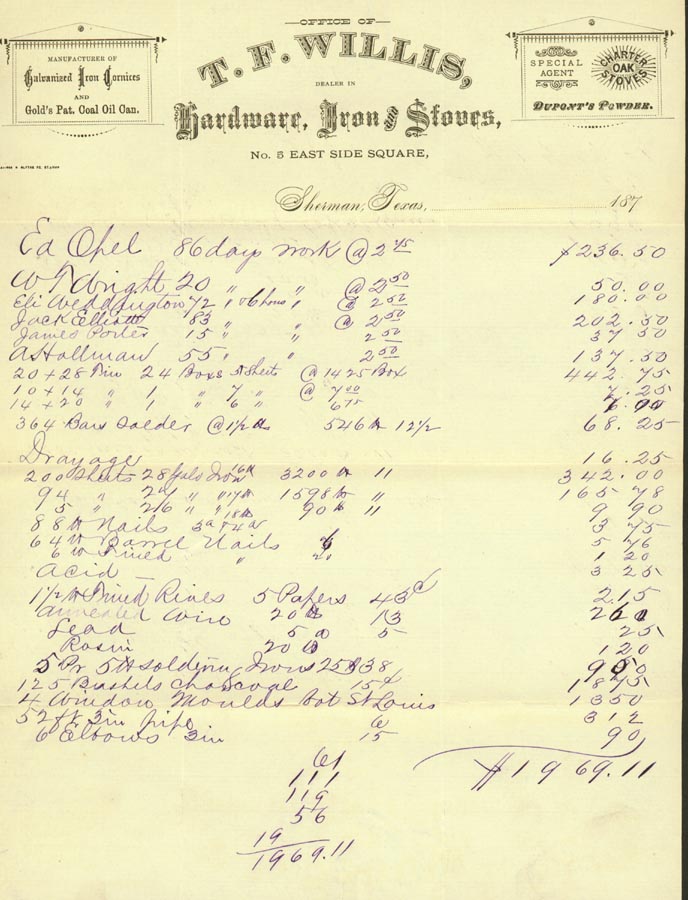 OFFICE OF
T. F. WILLIS,
DEALER IN
Hardware, Iron and Stoves,
No. 5 EAST SIDE SQUARE,
MANUFACTURER OF
Galvanized Iron Cornices
AND
Gold's Pat. Coal Oil Can.
SPECIAL
AGENT
CHARTER
OAK
STOVES
DUPONT'S POWDER.
Sherman, Texas, 187
Ed Opel 86 days work @ 2 75 $236.50
W T Wright 20 " " @ 2 50 50.00
Eli Weddington 72 " & 6 hours " @ 2 50 180.00
Jack Elliott 83 " " @ 2 50 202.50
James Porter 15 " " 2 50 37 50
A Hollman 55 " " 2 50 137.50
20 + 28 Tin 24 Boxs Sheets @ 14 25 Box 442.75
10 + 14 " 1 " 7 " @ 7 00 7.25
14 + 20 " 1 " 6 " 6 75
364 Bars Solder @ 1 1/2 lb 546 lb 12 1/2 68.25
Drayage 16.25
200 Sheets 28 Galv Iron 16 lb 3200 lb 11 342.00
94 " 27 " " 17 lb 1598 lb " 165 78
5 " 26 " " 18 lb 90 lb 11 9 90
8 lb Nails 3d & 4d 3 75
64 lb Barrel Nails 5 76
6 lb Tined " 1 20
Acid 3 25
1 1/2 lb Tined Rives 5 Papers 43c 2.15
Annealed Wire 20 lb 13 2 60
Lead 5 lb 5 25
Rosin 20 lb 1 20
5 Pr 5 lb Solding Irons 25 lb 38 9 50
125 Bushels Charcoal 15c 18 75
4 Window Moulds bot St Louis 13 50
52 ft 3in pipe 6 3 12
6 Elbows 3in 15 90
$1969.11
61
111
119
56
19
1969.11